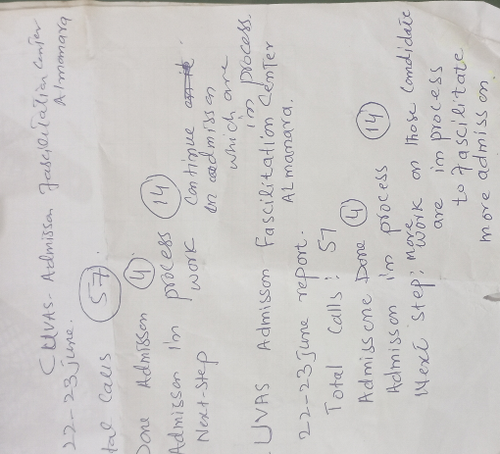 CUVAS- Admisson Fascilitation Center
Almanara
22-23 June.
tal calls 57.
Done Admisson 4
Admisson I'm process 14
Next-step work continue
on admisson
which are
in process.
UVAS Admisson Fascilitation Center
ALmanara.
22-23 June report.
Total calls: 57
Admissone Done 4
Admisson i'm process 14
Next step: more work on those candidate
are im process
to fascilitate
more admisson.